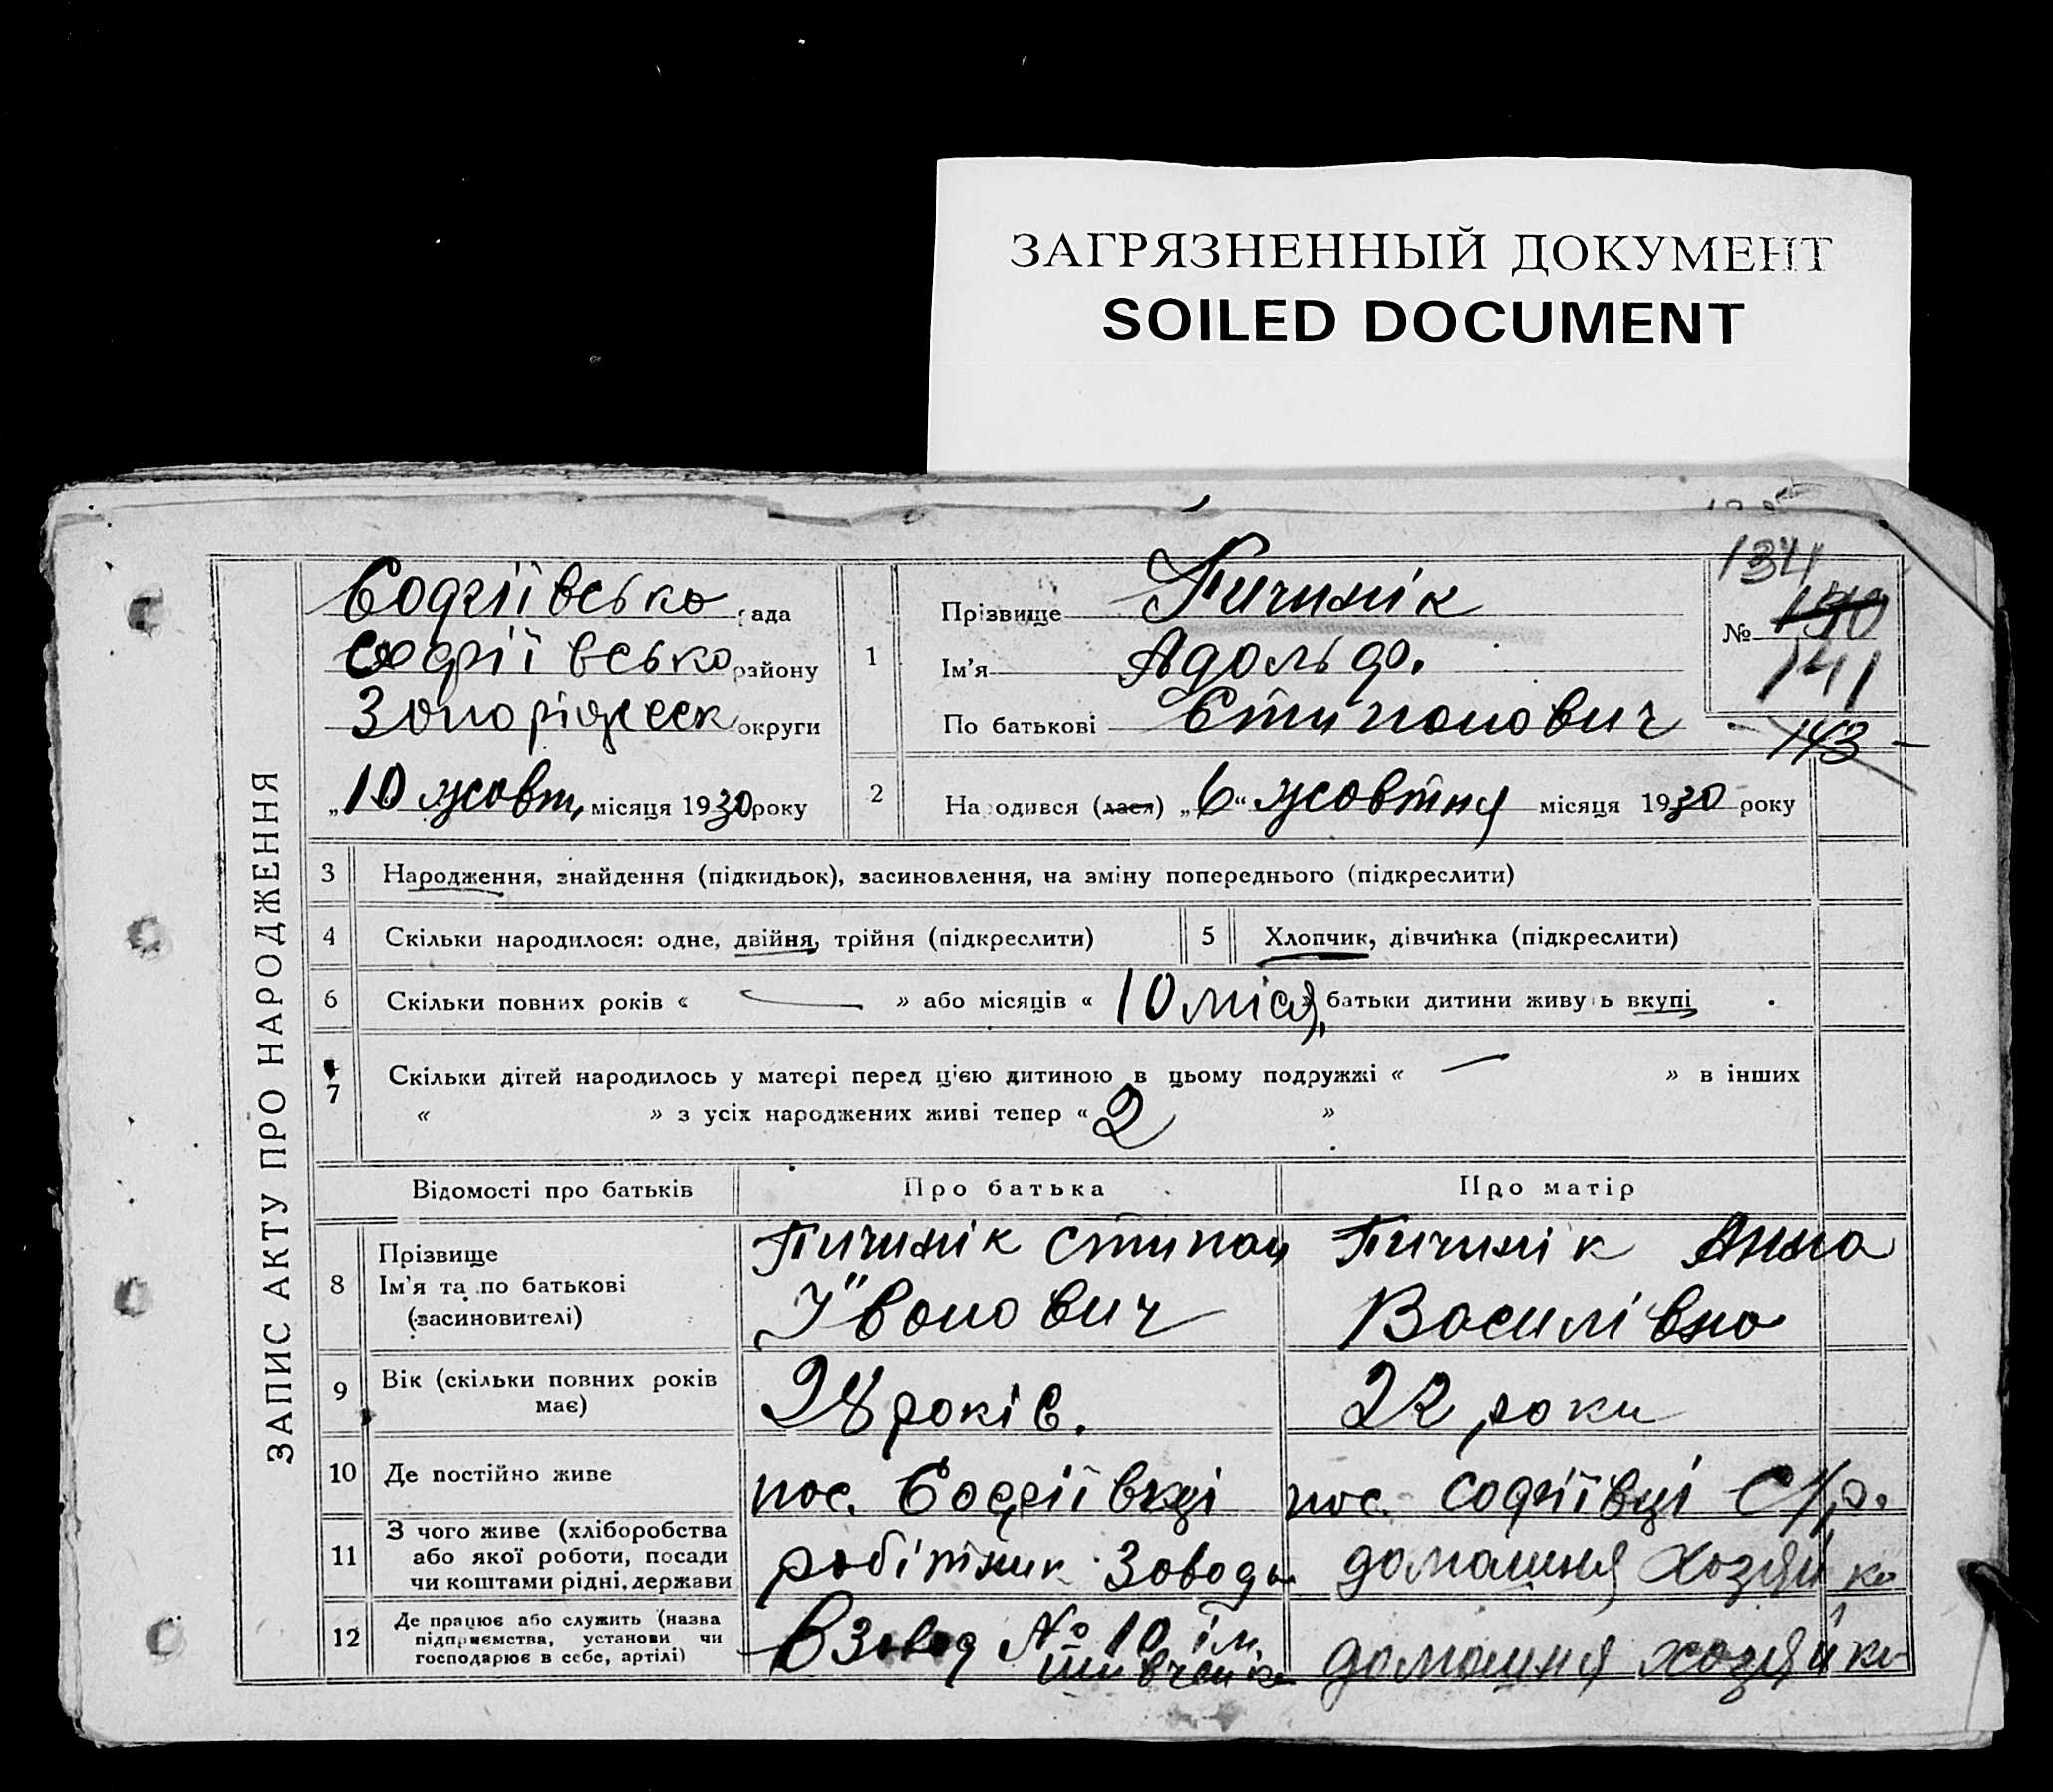 ЗАГРЯЗНЕННЫЙ ДОКУМЕНТ
SOILED DOCUMENT
ЗАПИС АКТУ ПРО НАРОДЖЕННЯ
Софіївсько рада
Софіївсько району
округи
„10 жовт, місяця 1930 року
1
Прізвище Пичинік
Ім'я Адольф.
По батькові Стипонович
134
№ 140
141
143
2 Народився (лася) „6“ жовтня місяця 1930 року
3 Народження, знайдення (підкидьок), засиновлення, на зміну попереднього (підкреслити)
4 Скільки народилося: одне, двійня, трійня (підкреслити) 5 Хлопчик, дівчинка (підкреслити)
6 Скільки повних років « — » або місяців « 10 міся, батьки дитини живуть вкупі
7 Скільки дітей народилось у матері перед цією дитиною в цьому подружжі « — » в інших
« » з усіх народжених живі тепер « 2 »
Відомості про батьків Про батька Про матір
8 Прізвище
Ім'я та по батькові
(засиновителі)
Пичинік Стипон
Івонович
Пичинік Анна
Василівно
9 Вік (скільки повних років
має)
28 років.
22 роки
10 Де постійно живе пос. Софіївкці пос. Софіївці С/р.
11 З чого живе (хліборобства
або якої роботи, посади
чи коштами рідні, держави
робітник Зоводу
домашня хозяйко
12 Де працює або служить (назва
підприємства, установи чи
господарює в себе, артілі)
В Завод № 10 ім
Шивченко
домошня хозяйко